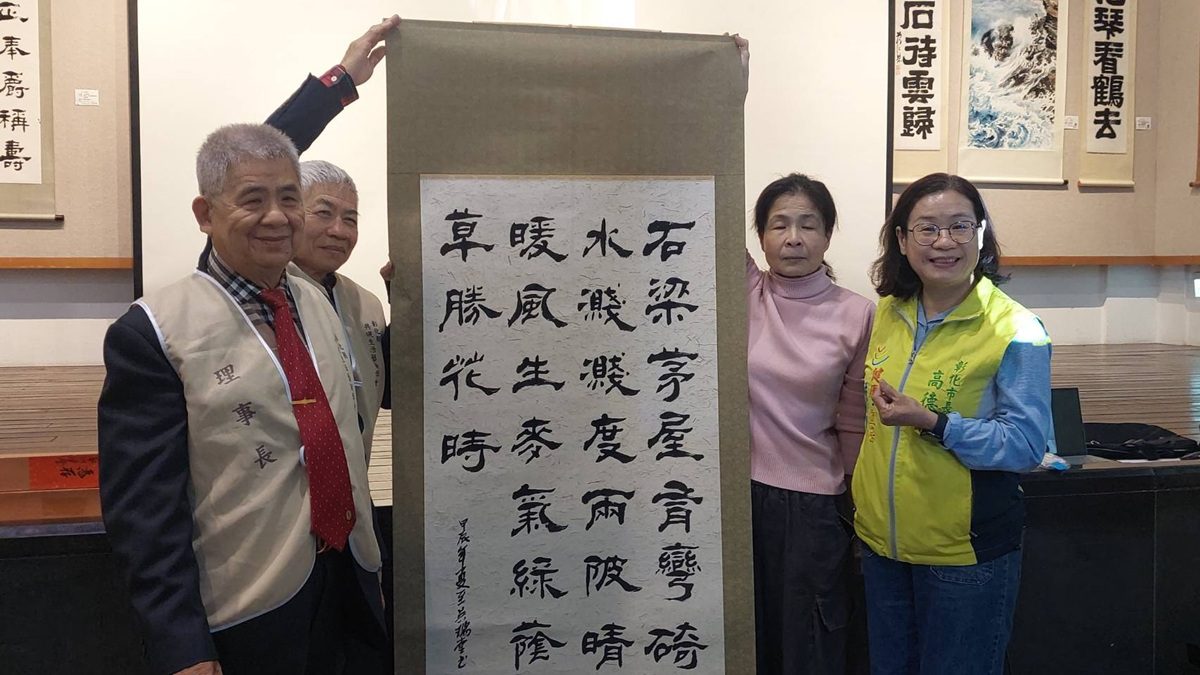 奉爵稱壽
石待雲歸
琴看鶴去
石梁茅屋有彎碕
水濺濺度兩陂晴
暖風生麥氣綠蔭
草勝花時
甲辰年夏至
理事長
彰化市
高德
健